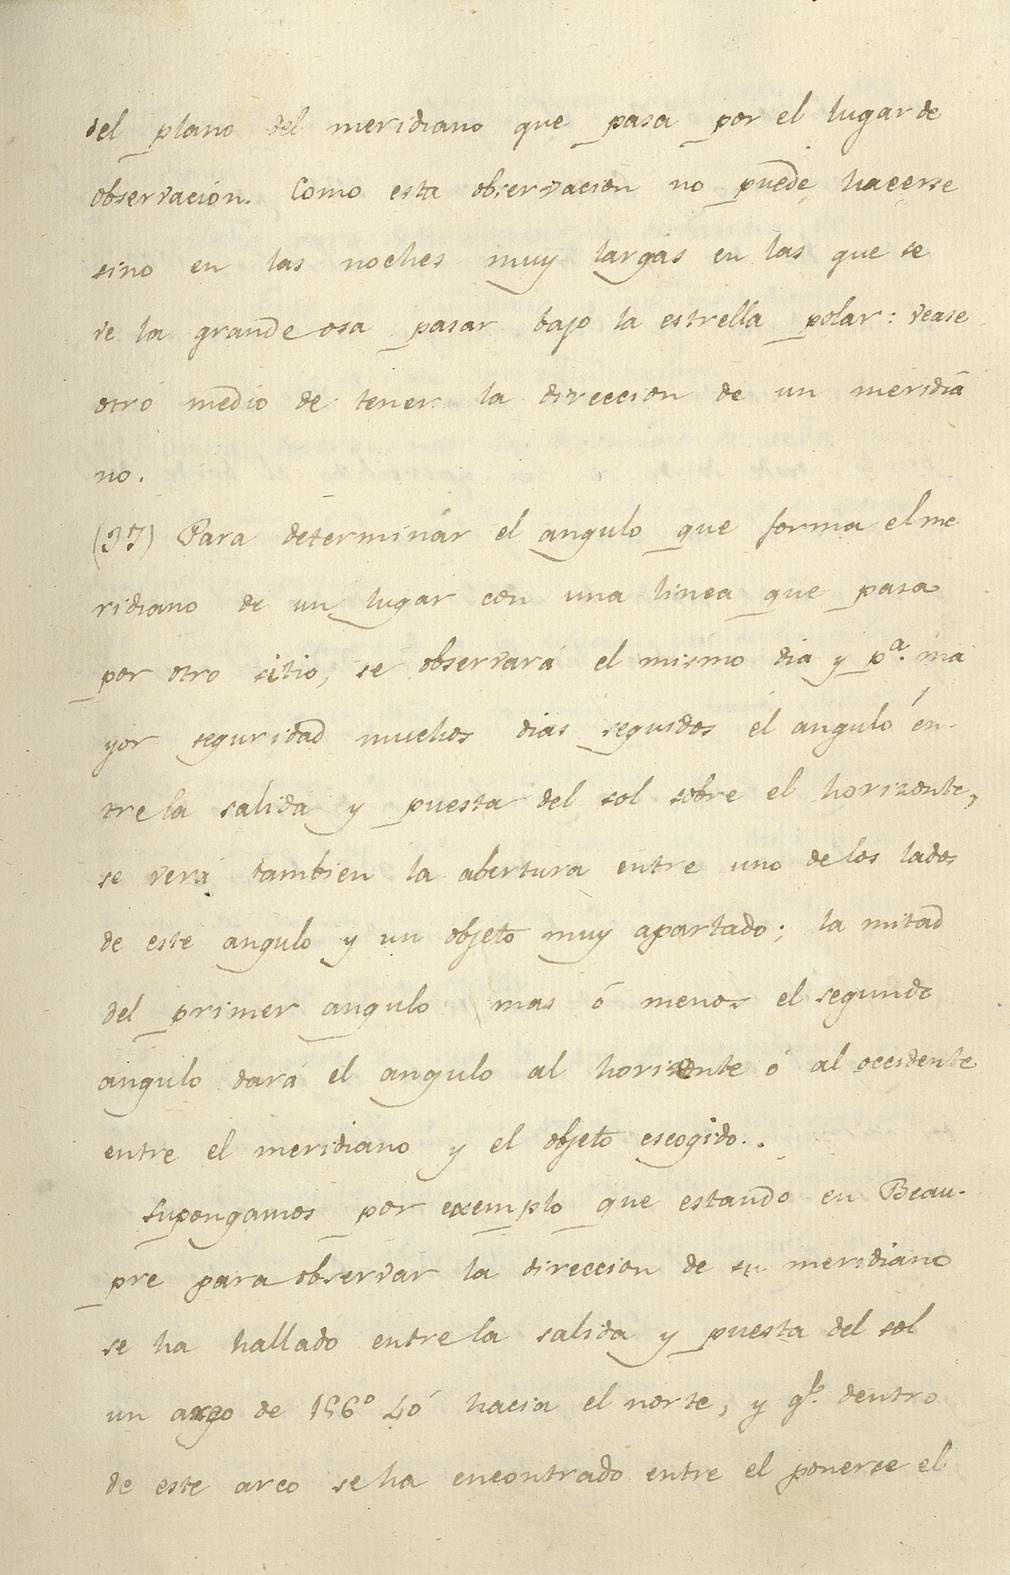 del plano del meridiano que pasa por el lugar de
observación. Como esta observacion no puede hacerse
sino en las noches muy largas en las que se
ve la grande osa pasar bajo la estrella polar: vease
otro medio de tener la direccion de un meridia
no.
(97) Para determinar el angulo que forma el me
ridiano de un lugar con una linea que pasa
por otro sitio, se observará el mismo dia y pª. ma
yor seguridad muchos dias seguidos el angulo en-
tre la salida y puesta del sol sobre el horizonte,
se verá tambien la abertura entre uno de los lados
de este angulo y un objeto muy apartado; la mitad
del primer angulo mas ó menos el segundo
angulo dará el angulo al horizonte ó al occidente
entre el meridiano y el objeto escogido.
Supongamos por exemplo que estando en Beau-
pre para observar la direccion de su meridiano
se ha hallado entre la salida y puesta del sol
un arco de 156° 40' hacia el norte, y qe. dentro
de este arco se ha encontrado entre el ponerse el